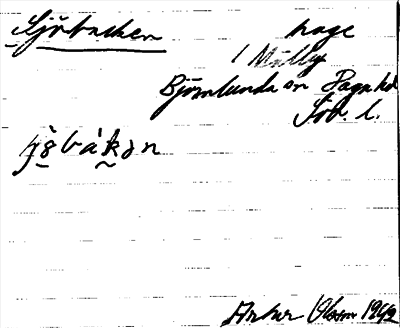 Sjöbacken hage
/ Mälby
Björnlunda sn Daga hd
Söd. l.
ŋö̀báḵən
Anker Olsson 1942